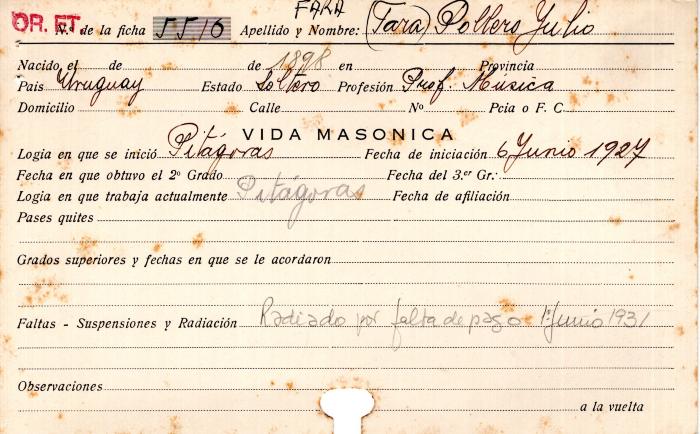 FARA
OR. ET.
N.º de la ficha 5516 Apellido y Nombre: (Tara) Pollero Julio
Nacido el de de 1898 en Provincia
Pais Uruguay Estado Soltero Profesión Prof. Música
Domicilio Calle Nº Pcia o F. C.
VIDA MASONICA
Logia en que se inició Pitágoras Fecha de iniciación 6 Junio 1927
Fecha en que obtuvo el 2º Grado Fecha del 3.er Gr.:
Logia en que trabaja actualmente Pitágoras Fecha de afiliación
Pases quites
Grados superiores y fechas en que se le acordaron
Faltas - Suspensiones y Radiación Radiado por falta de pago 1º Junio 1931
Observaciones
a la vuelta